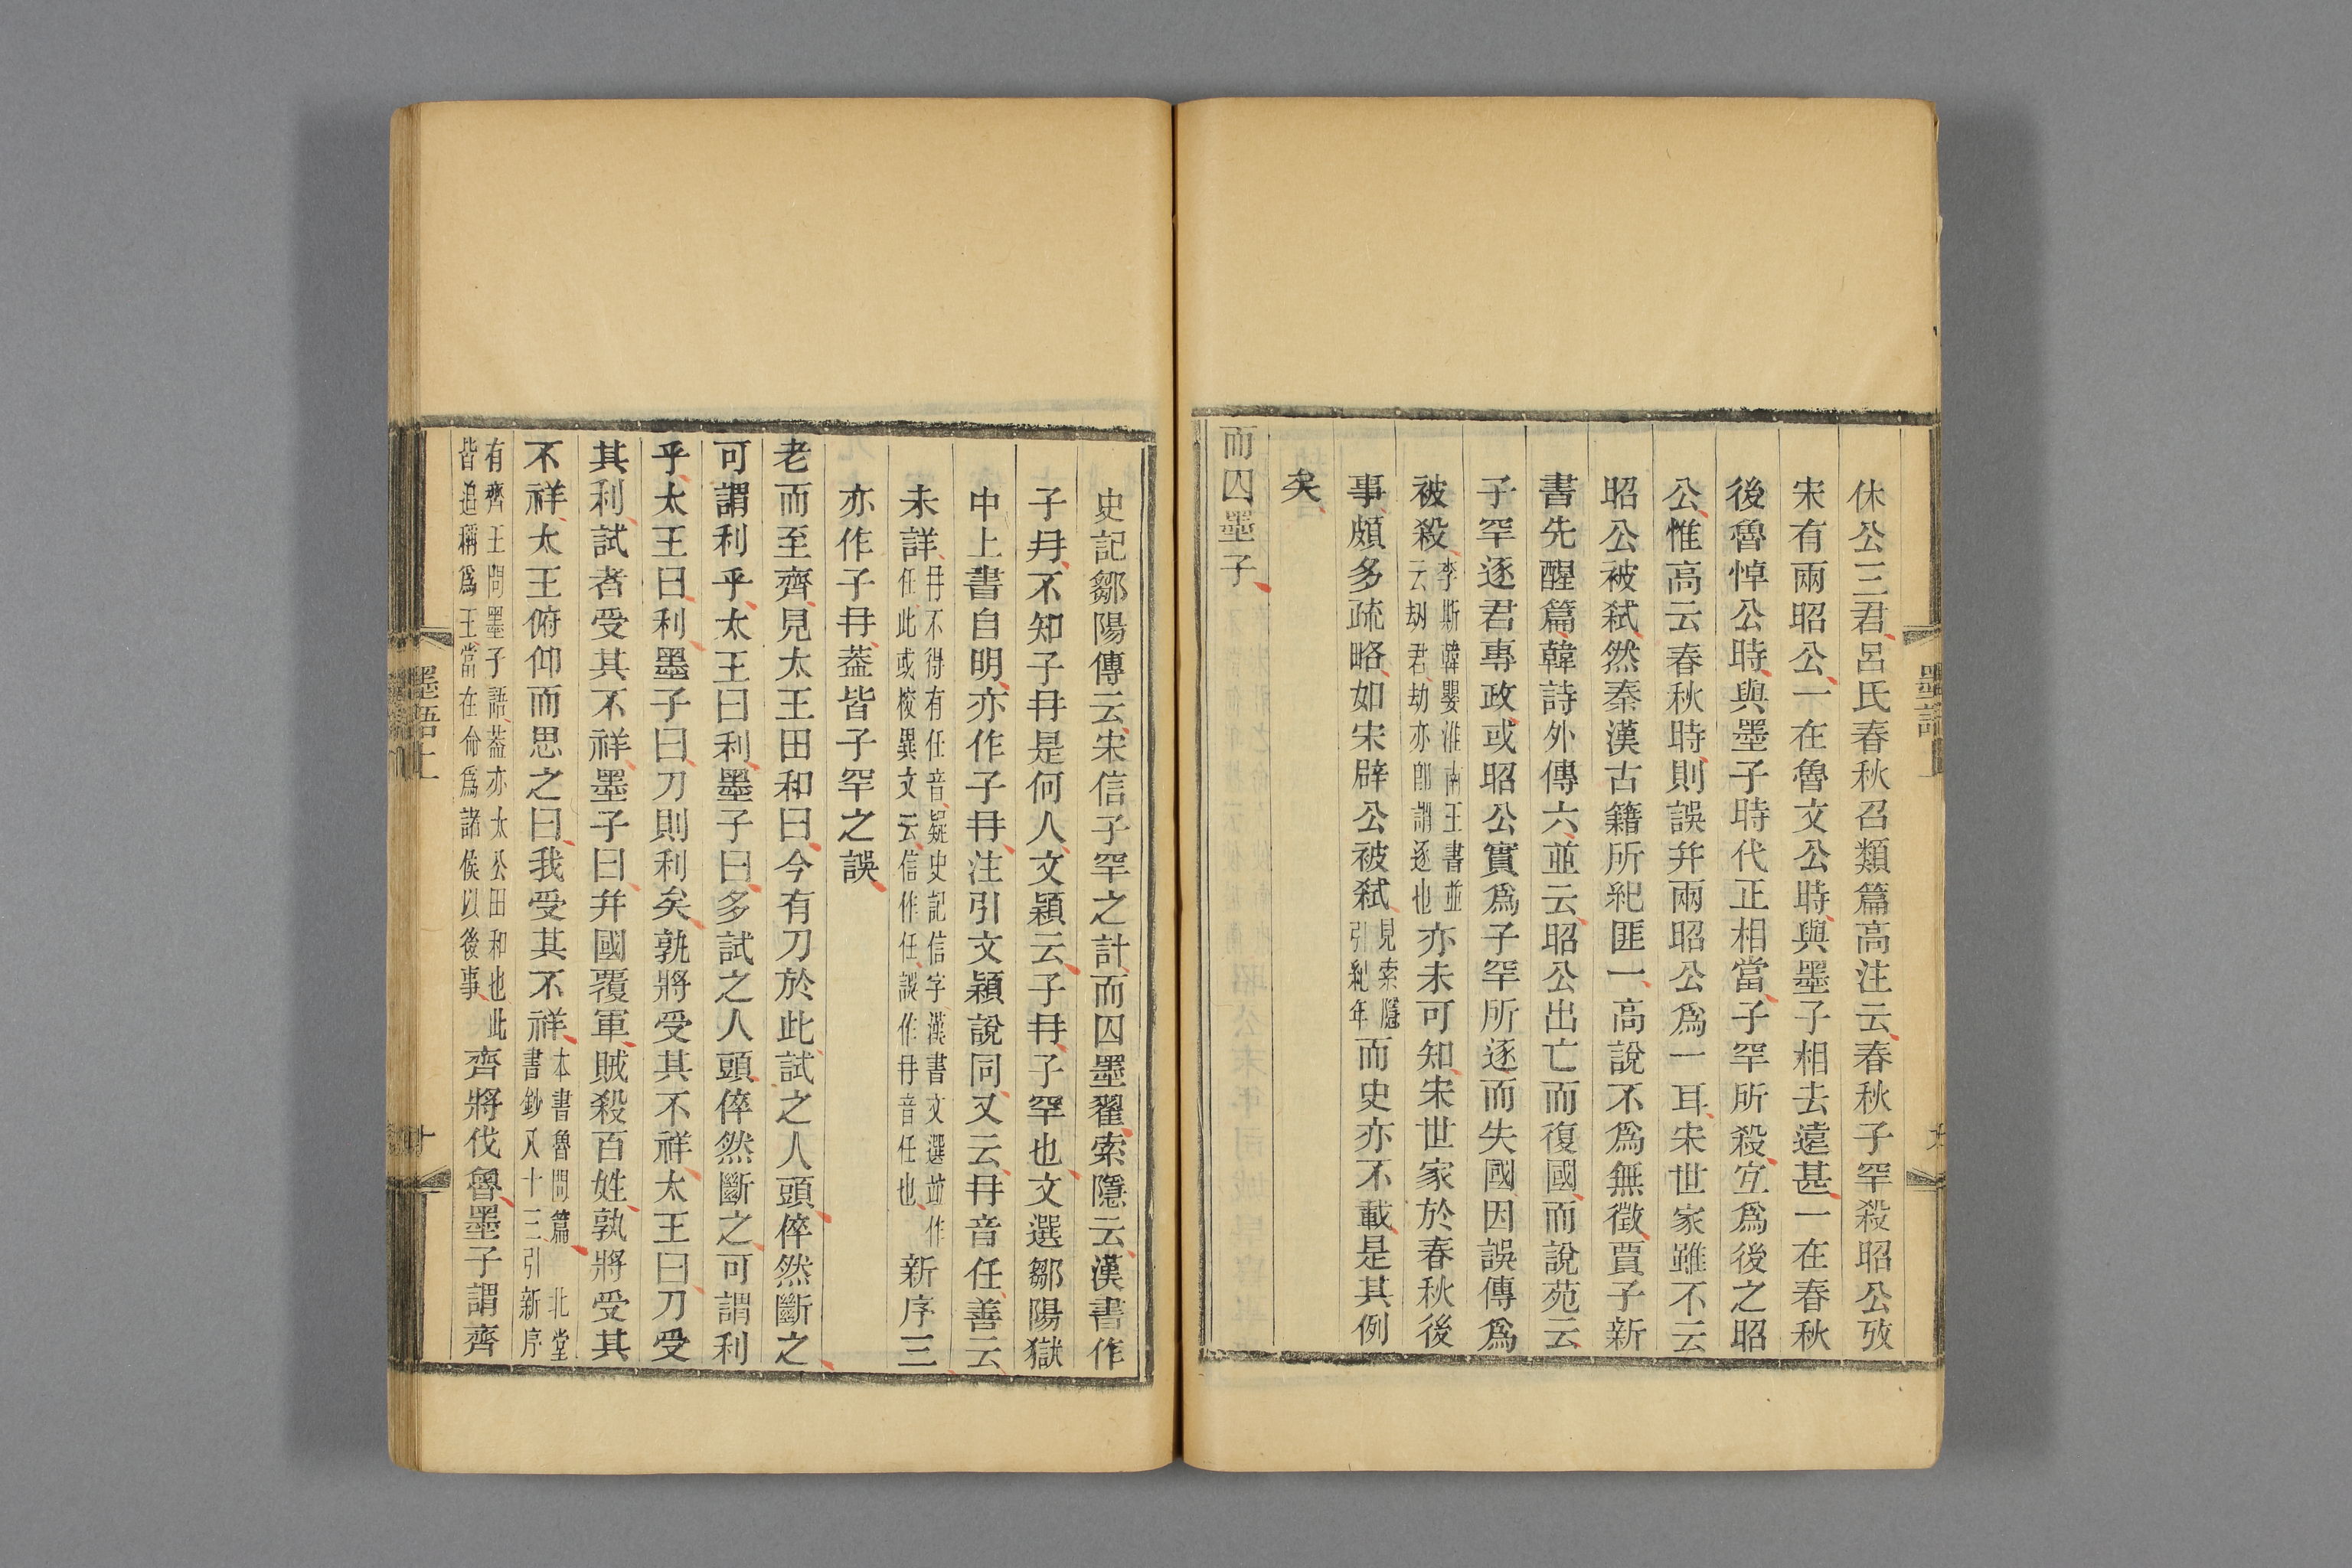 休公三君呂氏春秋召類篇高注云春秋子罕殺昭公攷
宋有兩昭公一在魯文公時與墨子相去遠甚一在春秋
後魯悼公時與墨子時代正相當子罕所殺宐爲後之昭
公惟高云春秋時則誤并兩昭公爲一耳宋世家雖不云
昭公被弑然秦漢古籍所紀匪一高說不爲無徵賈子新
書先醒篇韓詩外傳六並云昭公出亡而復國而說苑云
子罕逐君專政或昭公實爲子罕所逐而失國因誤傳爲
被殺李斯韓嬰淮南王書並云劫君劫亦卽謂逐也亦未可知宋世家於春秋後
事頗多疏略如宋辟公被弑見索隱引紀年而史亦不載是其例
矣
而囚墨子
史記鄒陽傳云宋信子罕之計而囚墨翟索隱云漢書作
子冄不知子冄是何人文穎云子冄子罕也文選鄒陽獄
中上書自明亦作子冄注引文穎說同又云冄音任善云
未詳冄不得有任音疑史記信字漢書文選並作任此或挍異文云信作任誤作冄音任也新序三
亦作子冄葢皆子罕之誤
老而至齊見太王田和曰今有刀於此試之人頭倅然斷之
可謂利乎太王曰利墨子曰多試之人頭倅然斷之可謂利
乎太王曰利墨子曰刀則利矣孰將受其不祥太王曰刀受
其利試者受其不祥墨子曰并國覆軍賊殺百姓孰將受其
不祥太王俯仰而思之曰我受其不祥本書魯問篇北堂書鈔八十三引新序
有齊王問墨子語葢亦太公田和也此皆追稱爲王當在命爲諸侯以後事齊將伐魯墨子謂齊
墨語上
十